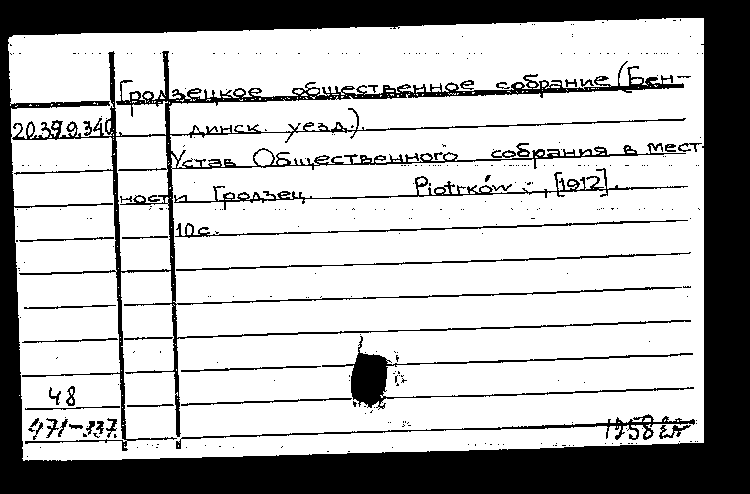 Гродзецкое общественное собрание (Бен-
20.39.9.340. динск. уезд.).
Устав Общественного собрания в мест-
ности Гродзец. Piotrków -, [1912].
10 с.
48
471-337